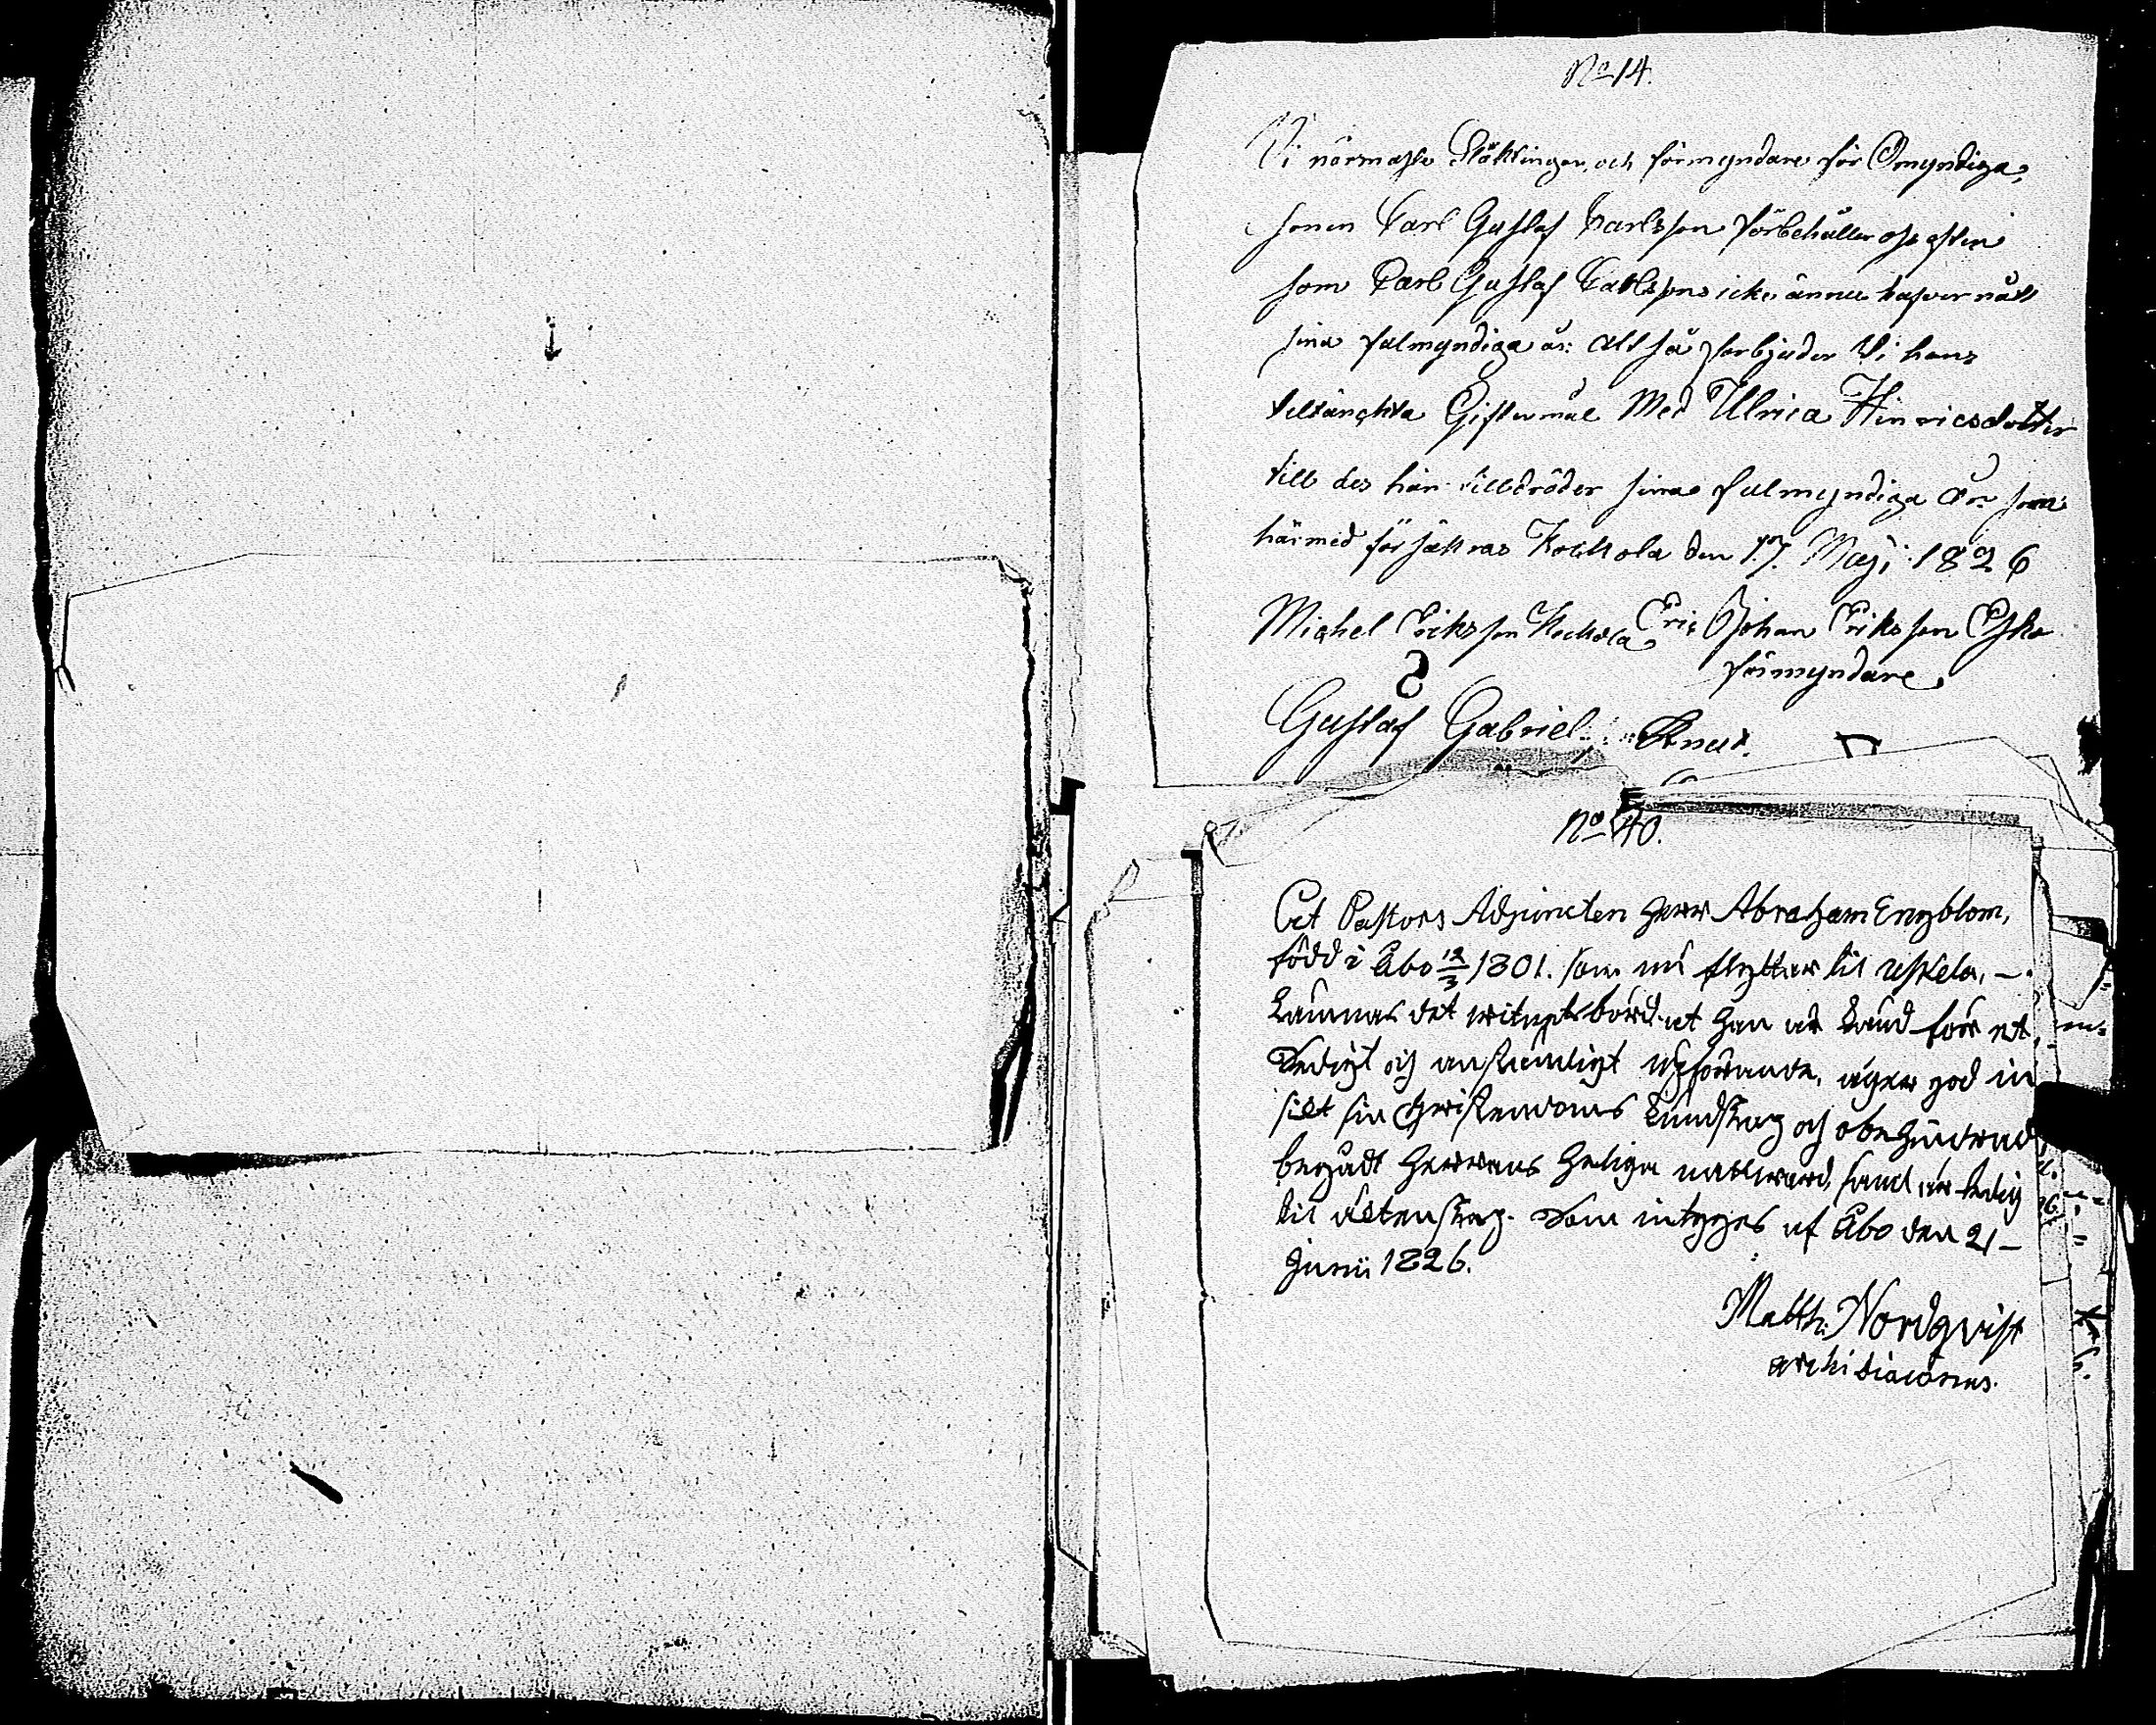 No 14.
Vi närmaste Släktingar och förmyndare för Omyndiga
sonen Carl Gustaf Carlsson förbehåller oss
som Carl Gustaf Carlsson icke ännu hafver nått
sina fulmyndiga år: Allt så förbjuder Vi hans
tiltänckta Giftermål Med Ulrica Hinricsdotter
till des han tillträder sina fulmyndiga År som
härmed försäkras Kockola den 17. Maji 1826
Michel Ericksson Kockola Eric Johan Eriksson
förmyndare
Gustaf Gabriel
No 40.
At Pastors Adjuncten Herr Abraham Engblom,
född i Åbo 12/3 1801. som nu flyttar til Uskela, –
lämnas det witnesbörd at han är känd för et
dedigt och anständigt upförande, äger god in
sikt sin Christendoms kundskap och obehindrad
begådt Herrans Heliga nattward, samt är ledig
til äktenskap. Som intyges af Åbo den 21 –
Junii 1826.
Matth. Nordqvist
archidiaconus.